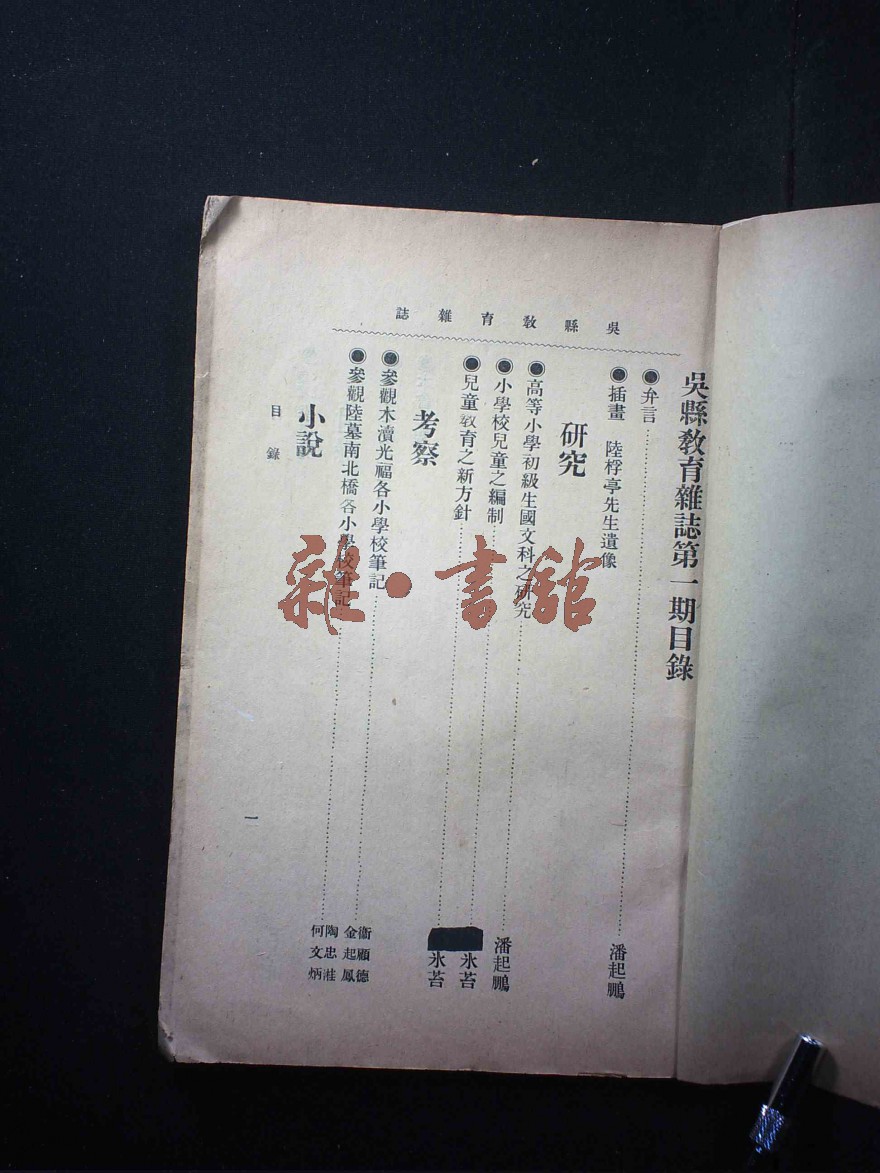 吳縣教育雜誌
吳縣教育雜誌第一期目錄
◉弁言……潘起鵬
◉插畫　陸桴亭先生遺像
研究
◉高等小學初級生國文科之研究……潘起鵬
◉小學校兒童之編制……氷苔
◉兒童教育之新方針……氷苔
考察
◉參觀木瀆光福各小學校筆記……衞顧德
金起鳳
◉參觀陸墓南北橋各小學校筆記……陶忠
何文炳
小說
目錄
一
雜·書舘